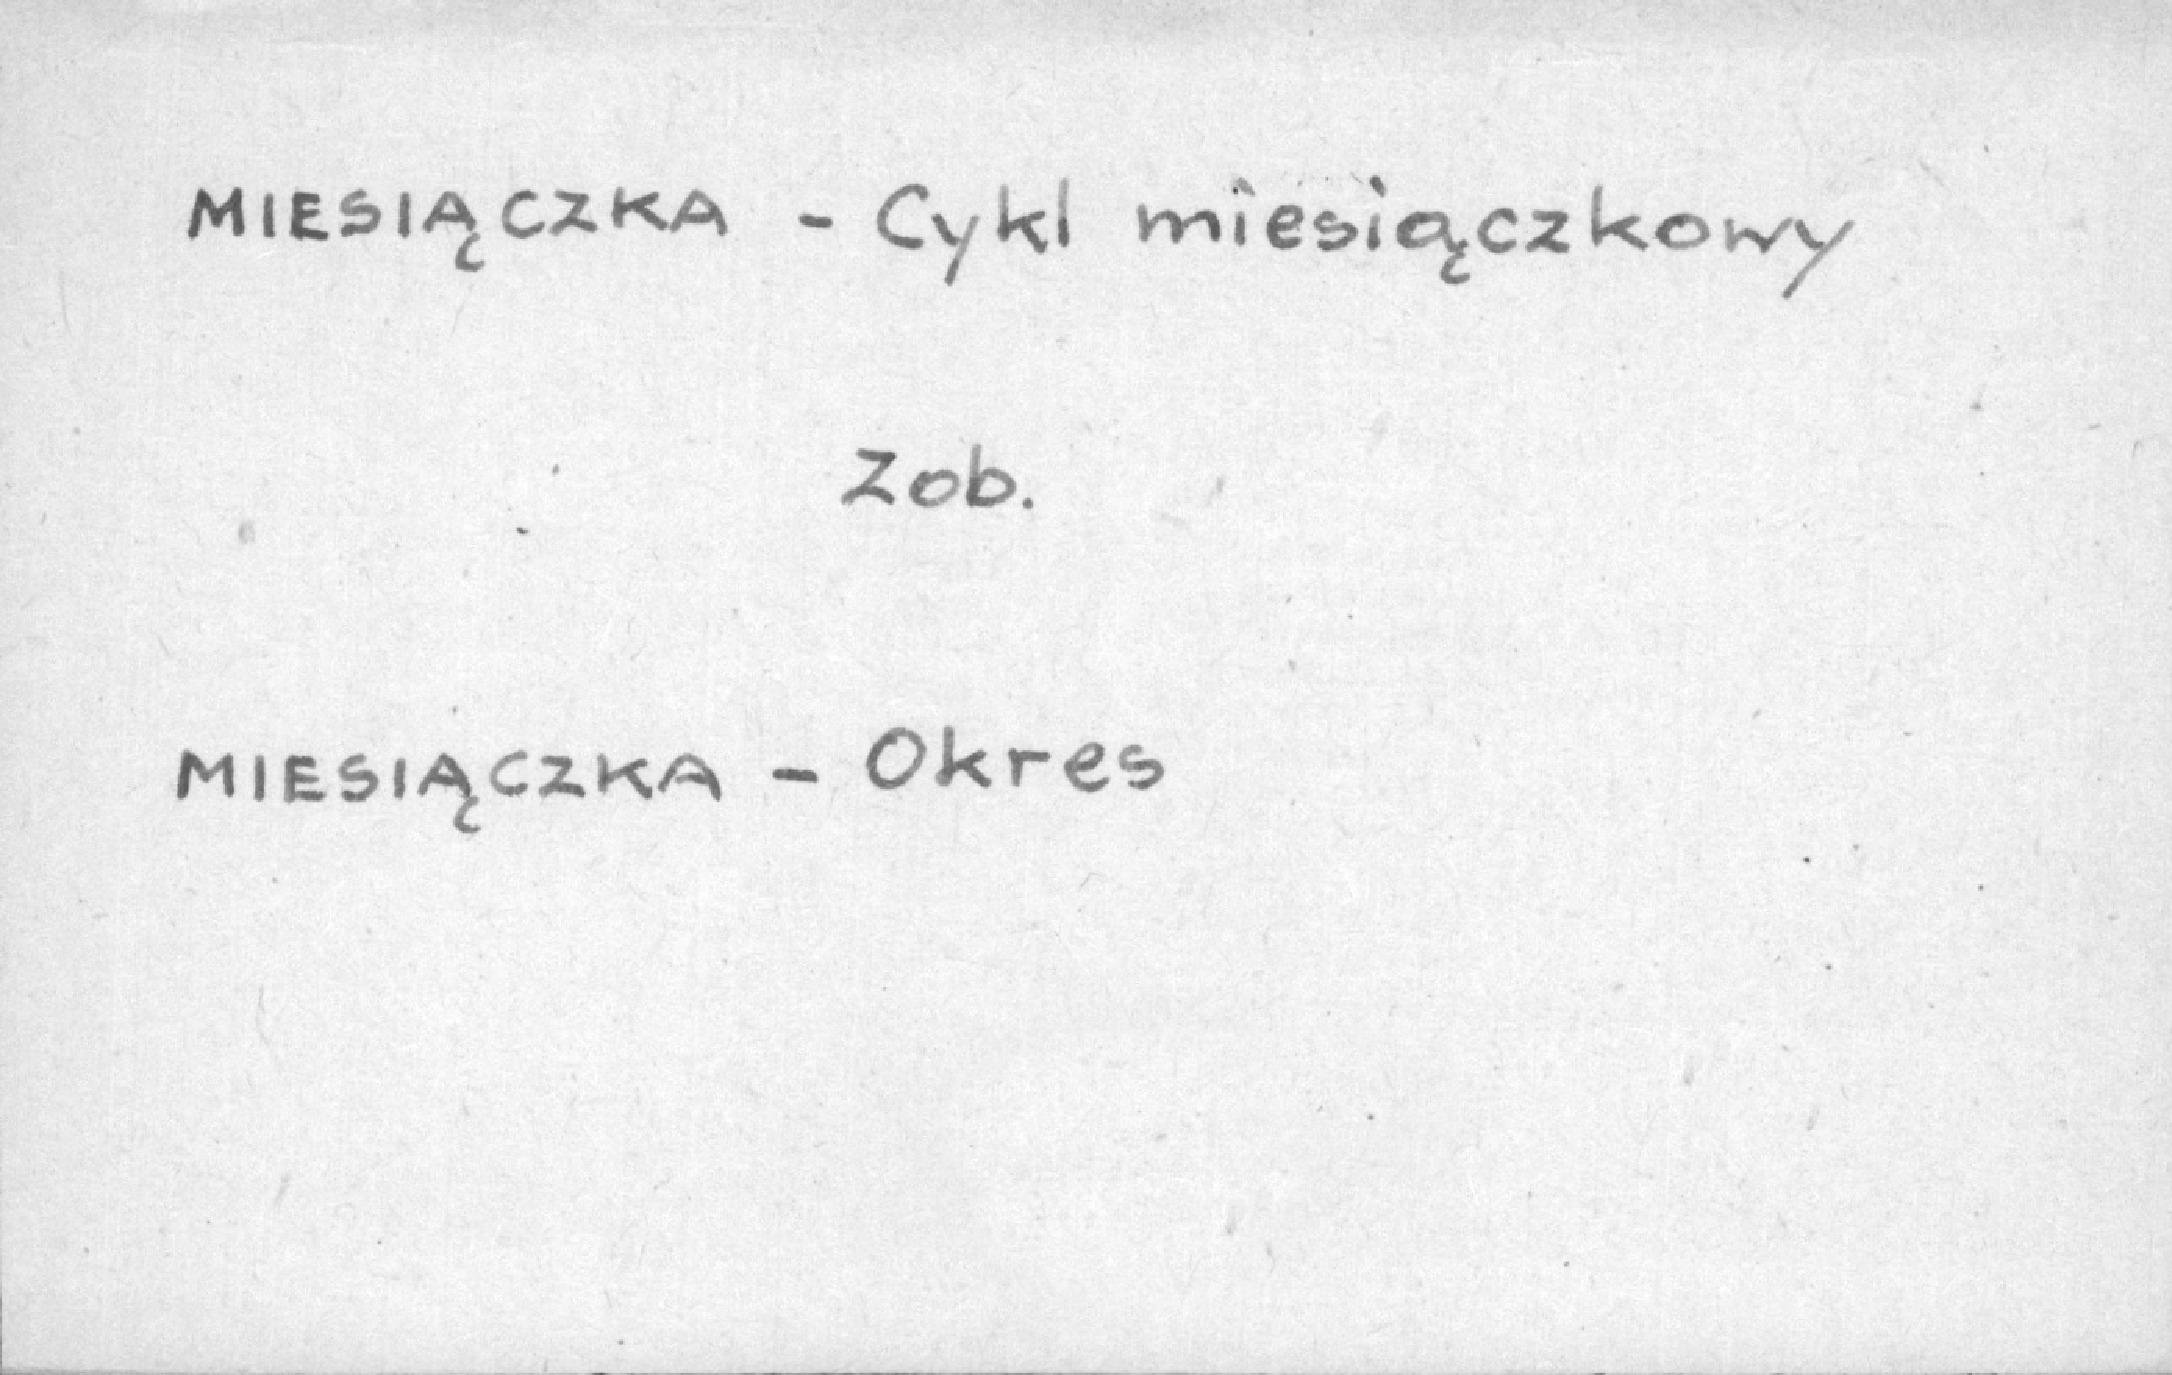 MIESIĄCZKA - Cykl miesiączkowy
Zob.
MIESIĄCZKA - Okres